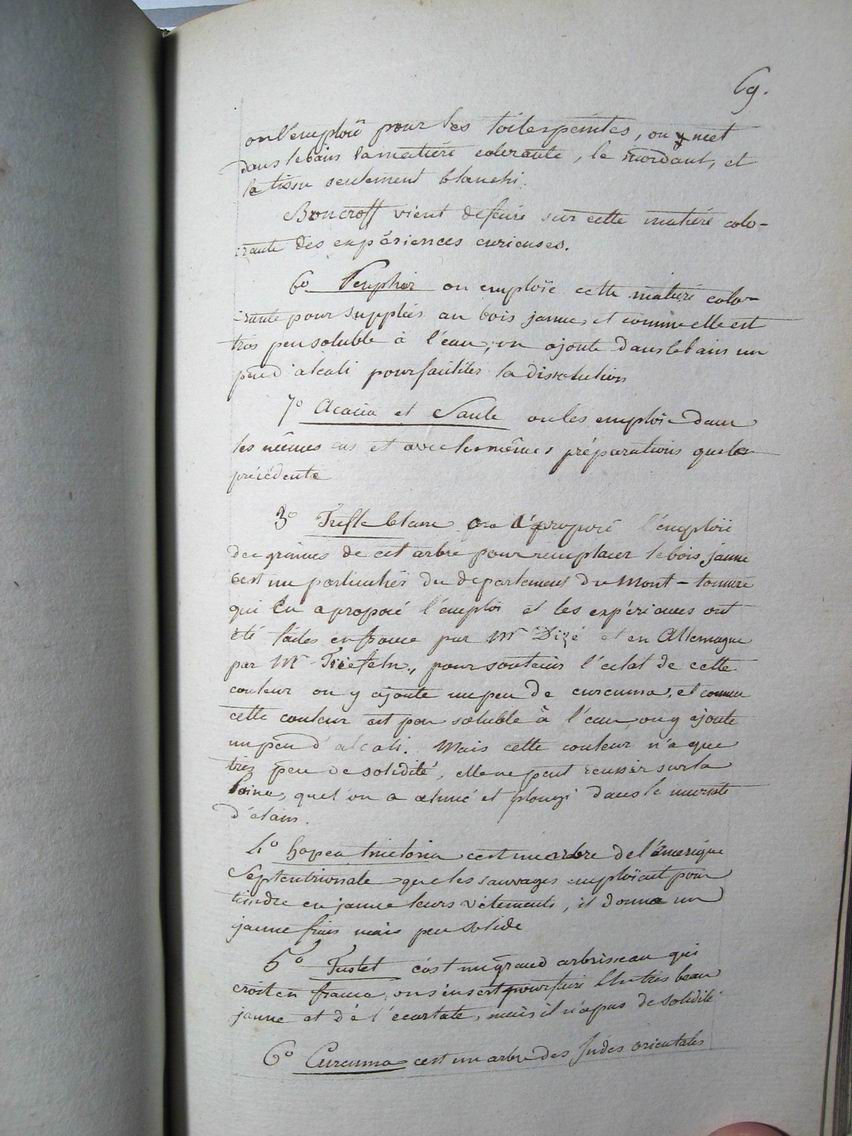 69.
on l'emploïe pour les toiles peintes, on y met
dans le bain la matière colorante, le mordant, et
le tissu seulement blanchi.
Boncroff vient defaire sur cette matiere colo-
rante des expériences curieuses.
6o Peuplier on emploïe cette matiere color-
rante pour suppléer au bois jaune, et comme elle est
tres peu soluble à l'eau, on ajoute dans le bain un
peu d'alcali pour faciliter la dissolution
7o Acacia et Saule on les emploïe dans
les mêmes cas et avec les mêmes préparations que la
précédente
3o Trefle blanc on a proposé l'emploïe
des graines de cet arbre pour remplacer le bois jaune
c'est un particulier du departement du Mont-tonnere
qui en a proposé l'emploi et les expériences ont
été faites en france par Mr Dizé et en Allemagne
par Mr, pour soutenir l'éclat de cette
couleur on y ajoute un peu de curcuma, et comme
cette couleur est peu soluble à l'eau, on y ajoute
un peu d'alcali. Mais cette couleur n'a que
très peu de solidité, elle ne peut reussir sur la
laine, quel on a aluné et plongé dans le muriate
d'étain.
4o hopea tinctoria c'est un arbre de l'amerique
Septentrionale que les sauvages emploïent pour
teindre en jaune leurs vêtements, il donne un
jaune fin mais peu solide
5o Fustet c'est un grand arbrisseau qui
croit en france, on s'en sert pour faire un très beau
jaune et de l'écarlate, mais il n'a pas de solidité
6o Curcuma c'est un arbre des Indes orientales